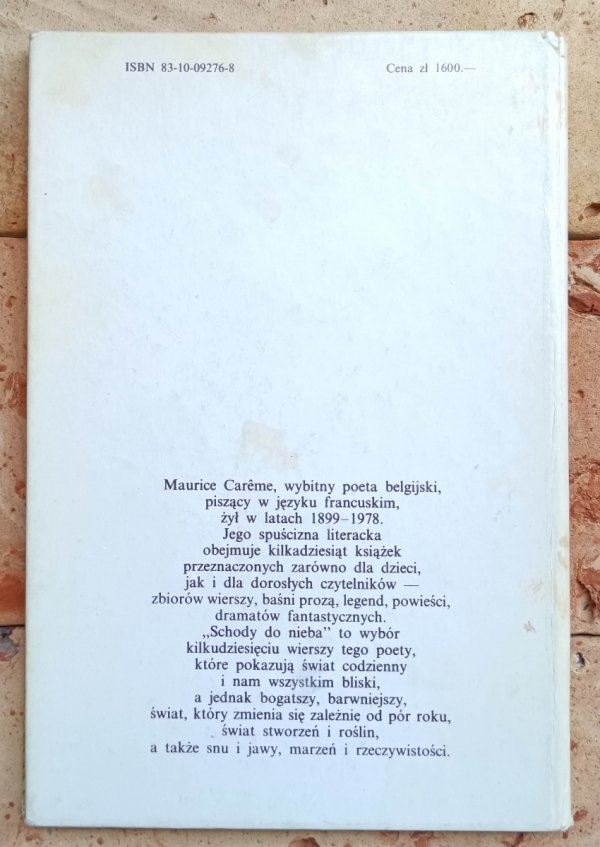 ISBN 83-10-09276-8 Cena zł 1600.—
Maurice Carême, wybitny poeta belgijski,
piszący w języku francuskim,
żył w latach 1899–1978.
Jego spuścizna literacka
obejmuje kilkadziesiąt książek
przeznaczonych zarówno dla dzieci,
jak i dla dorosłych czytelników —
zbiorów wierszy, baśni prozą, legend, powieści,
dramatów fantastycznych.
„Schody do nieba” to wybór
kilkudziesięciu wierszy tego poety,
które pokazują świat codzienny
i nam wszystkim bliski,
a jednak bogatszy, barwniejszy,
świat, który zmienia się zależnie od pór roku,
świat stworzeń i roślin,
a także snu i jawy, marzeń i rzeczywistości.